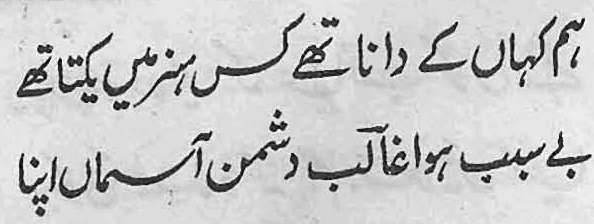 ہم کہاں کے دانا تھے کس ہنر میں یکتا تھے
بے سبب ہوا غالب دشمن آسماں اپنا